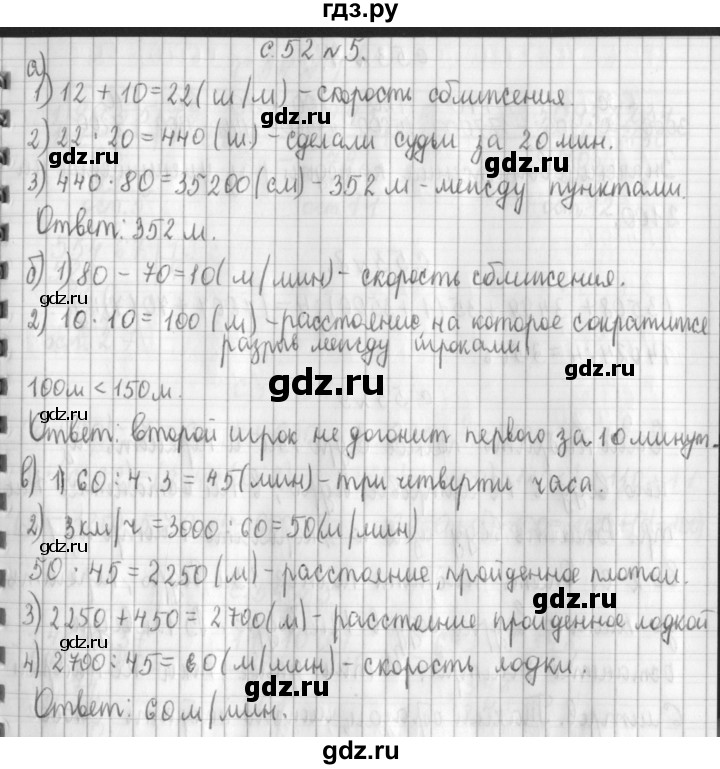 гдз.ру
с. 52 № 5.
а)
1) 12 + 10 = 22 (ш/м) – скорость сближения.
2) 22 · 20 = 440 (ш.) – сделали судьи за 20 мин.
gdz.ru
gdz.ru
3) 440 · 80 = 35200 (см) – 352 м – между пунктами.
Ответ: 352 м.
gdz.ru
б) 1) 80 – 70 = 10 (м/мин) – скорость сближения.
gdz.ru
2) 10 · 10 = 100 (м) – расстояние на которое сократится
разрыв между игроками
gdz.ru
gdz.ru
100 м < 150 м.
gdz.ru
Ответ: второй игрок не догонит первого за 10 минут.
в) 1) 60 : 4 · 3 = 45 (мин) – три четверти часа.
gdz.ru
2) 3 км/ч = 3000 : 60 = 50 (м/мин)
gdz.ru
50 · 45 = 2250 (м) – расстояние, пройденное плотом.
gdz.ru
3) 2250 + 450 = 2700 (м) – расстояние пройденное лодкой
gdz.ru
4) 2700 : 45 = 60 (м/мин) – скорость лодки.
gdz.ru
Ответ: 60 м/мин.
gdz.ru